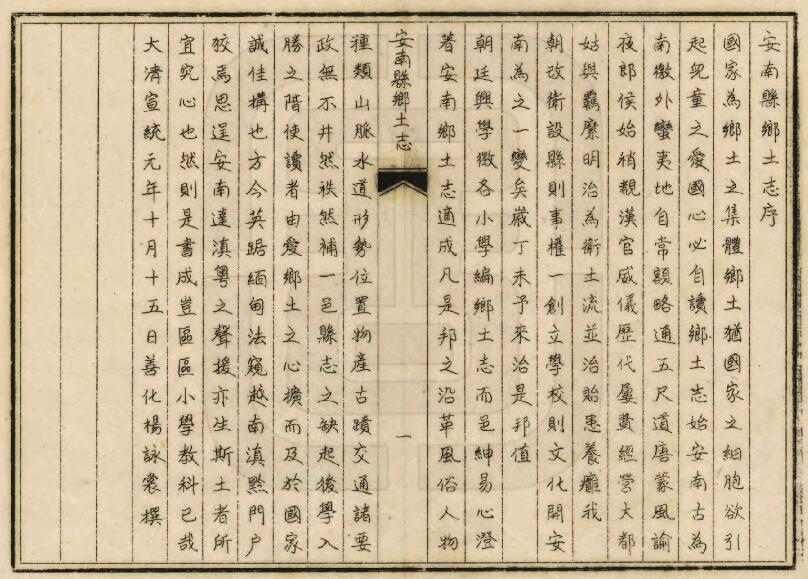 安南縣鄉土志序
國家為鄉土之集體鄉土猶國家之細胞欲引
起兒童之愛國心必自讀鄉土志始安南古為
南徼外蠻夷地自常頞略通五尺道唐蒙風諭
夜郎侯始稍覩漢官威儀歷代屢費經營大都
姑與羈縻明治為衛土流並治貽患養癰我
朝改衛設縣則事權一創立學校則文化開安
南為之一變矣歲丁未予來治是邦值
朝廷興學徵各小學編鄉土志而邑紳易心澄
著安南鄉土志適成凡是邦之沿革風俗人物
安南縣鄉土志
一
種類山脈水道形勢位置物產古蹟交通諸要
政無不井然秩然補一邑縣志之缺起後學入
勝之階使讀者由愛鄉土之心擴而及於國家
誠佳構也方今英踞緬甸法窺越南滇黔門戶
狡焉思逞安南達滇粵之聲援亦生斯土者所
宜究心也然則是書成豈區區小學教科已哉
大清宣統元年十月十五日善化楊詠裳撰